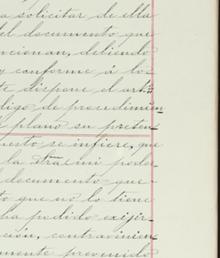 a solicitar de ella
del documento que
ncionan, debiendo
y conforme á lo
te dispone el art.
digo de procedimien
plano su preten
uesto se infiere, que
la
documento que
to que no lo tiene
ha podido exigir
ción, contravinien
mente prevenido